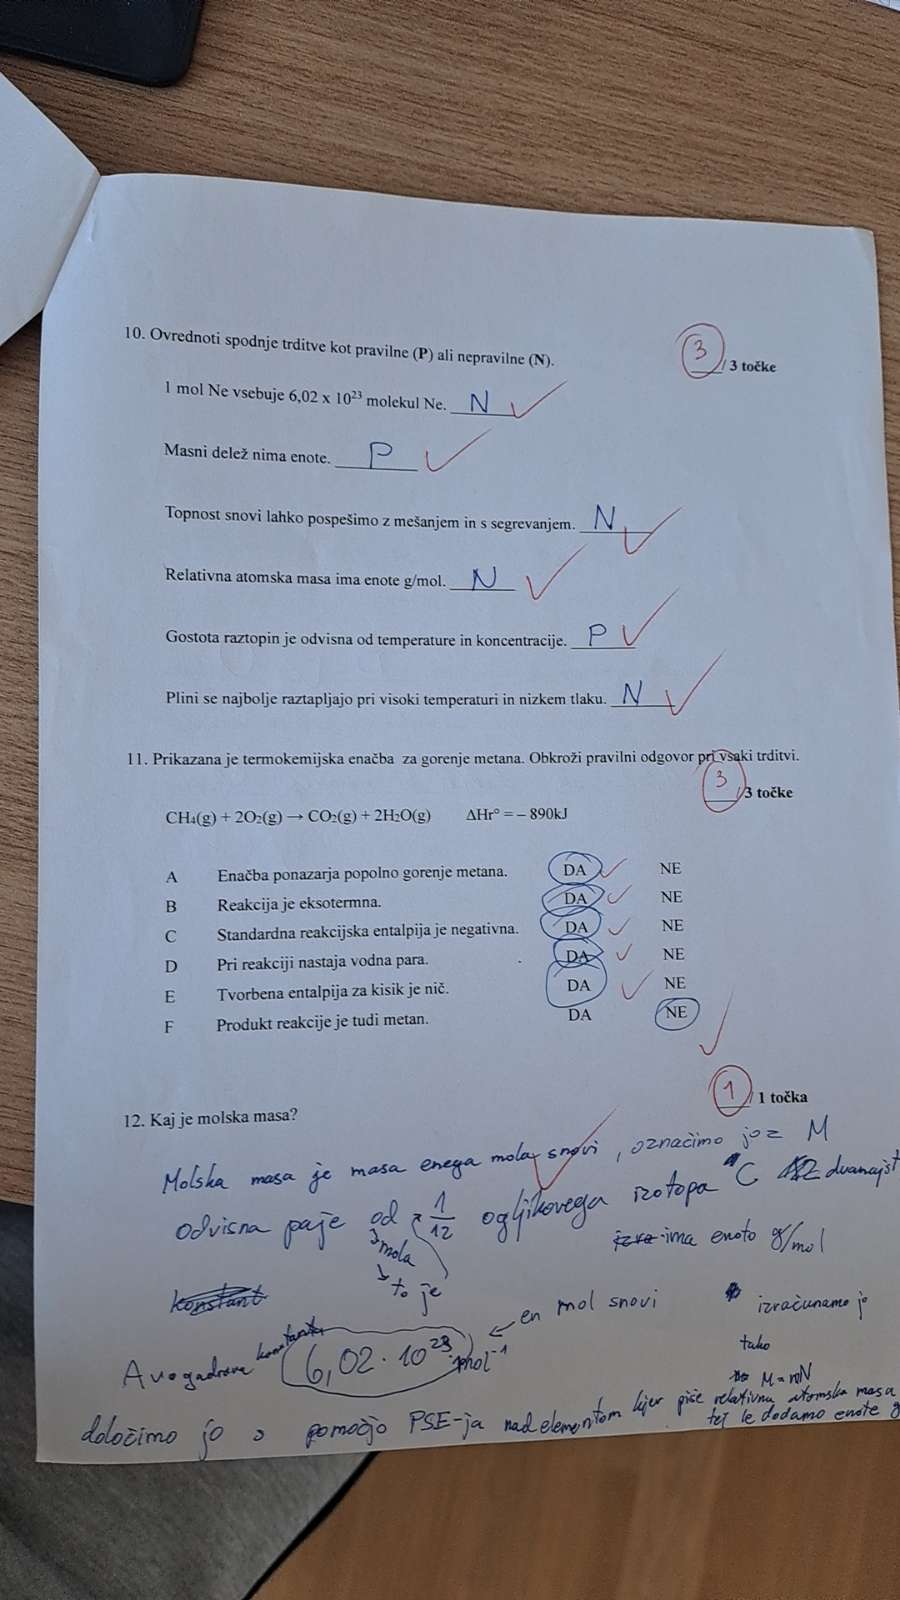 10. Ovrednoti spodnje trditve kot pravilne (P) ali nepravilne (N).
3 / 3 točke
1 mol Ne vsebuje 6,02 x 10²³ molekul Ne. N
Masni delež nima enote. P
Topnost snovi lahko pospešimo z mešanjem in s segrevanjem. N
Relativna atomska masa ima enote g/mol. N
Gostota raztopin je odvisna od temperature in koncentracije. P
Plini se najbolje raztapljajo pri visoki temperaturi in nizkem tlaku. N
11. Prikazana je termokemijska enačba za gorenje metana. Obkroži pravilni odgovor pri vsaki trditvi.
3 /3 točke
CH₄(g) + 2O₂(g) → CO₂(g) + 2H₂O(g) ΔHr° = – 890kJ
A Enačba ponazarja popolno gorenje metana. DA NE
B Reakcija je eksotermna. DA NE
C Standardna reakcijska entalpija je negativna. DA NE
D Pri reakciji nastaja vodna para. DA NE
E Tvorbena entalpija za kisik je nič. DA NE
F Produkt reakcije je tudi metan. DA NE
1 / 1 točka
12. Kaj je molska masa?
Molska masa je masa enega mola snovi, označimo jo z M
odvisna pa je od 1/12 ogljikovega izotopa C dvanajst
mola
ima enoto g/mol
to je
konstant
en mol snovi
izračunamo jo
tako
Avogadrova konstanta 6,02 · 10²³ mol⁻¹
določimo jo s pomočjo PSE-ja nad elementom kjer piše relativna atomska masa
tej le dodamo enote g